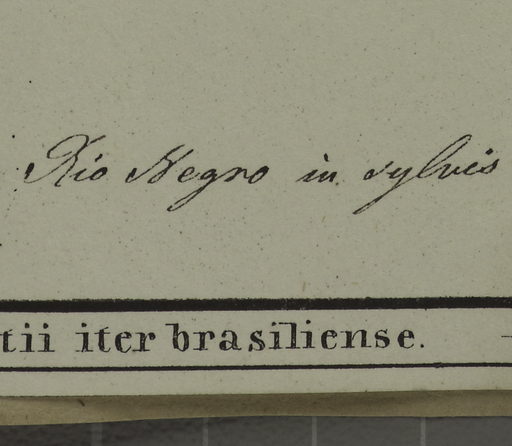 Rio Negro in sylvis
tii iter brasiliense.